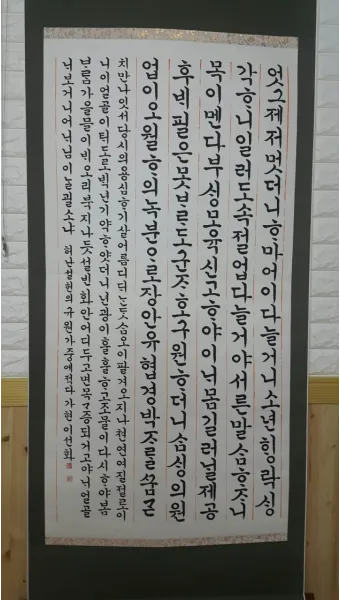 엇그제저멋더니ᄒᆞ마어이다늘거니소년ᄒᆡᆼ락ᄉᆡᆼ
각ᄒᆞ니일러도속절업다늘거야서른말ᄉᆞᆷᄒᆞᄌᆞ니
목이멘다부ᄉᆡᆼ모육신고ᄒᆞ야이ᄂᆡ몸길러ᄂᆡᆯ제공
후ᄇᆡ필은못ᄇᆞ라도군ᄌᆞ호구원ᄒᆞ더니삼ᄉᆡᆼ의원
업이오월ᄒᆞ의 장안유협경박ᄌᆞ를
치만나잇서당시의용심ᄒᆞ기살어름디디는듯삼오이팔겨오지나천연여질절로이
니이얼골이ᄐᆡ도로ᄇᆡᆨ년기약ᄒᆞ얏더니년광이훌훌ᄒᆞ고조물이다시ᄒᆞ야봄
ᄇᆞ람가을물이뵈오리북지나듯설빈화안어디두고면목가증되거고야ᄂᆡ얼골
ᄂᆡ보거니어ᄂᆡ님이ᄂᆞᆯ괼소냐 허난설헌의규원가중에적다가현이선화